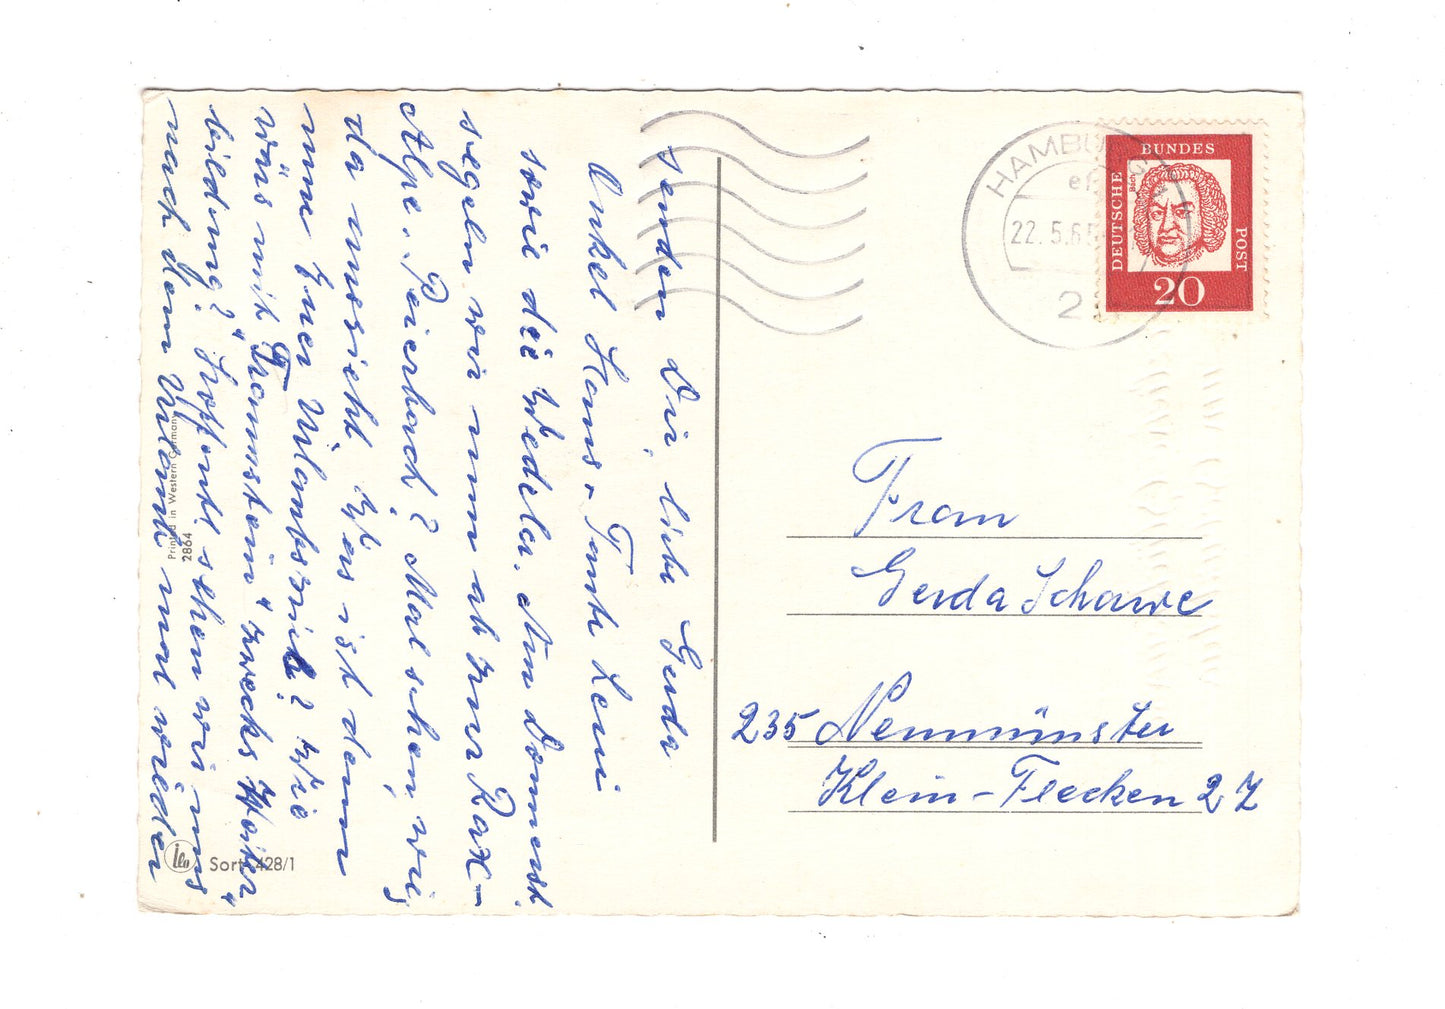 senden Dir, liebe Gerda
Onkel Hans + Tante Leni
sowie die Wedeler. Am Donnerst.
segeln wir nun ab zur Rax-
Alpe. Peierbach? Mal sehen, wie
da aussieht. Was ist denn
nun Euer Urlaubsziel? Wie
wärs mit "Traunstein" zwecks "Weiter"
bildung? Hoffentl. sehen wir uns
nach dem Urlaub mal wieder
Printed in Western Germany
2864
ilo
Sort. 428/1
HAMBURG
22.5.65
2
DEUTSCHE
BUNDES
POST
Bach
20
Frau
Gerda Schawe
235 Neumünster
Klein-Flecken 27